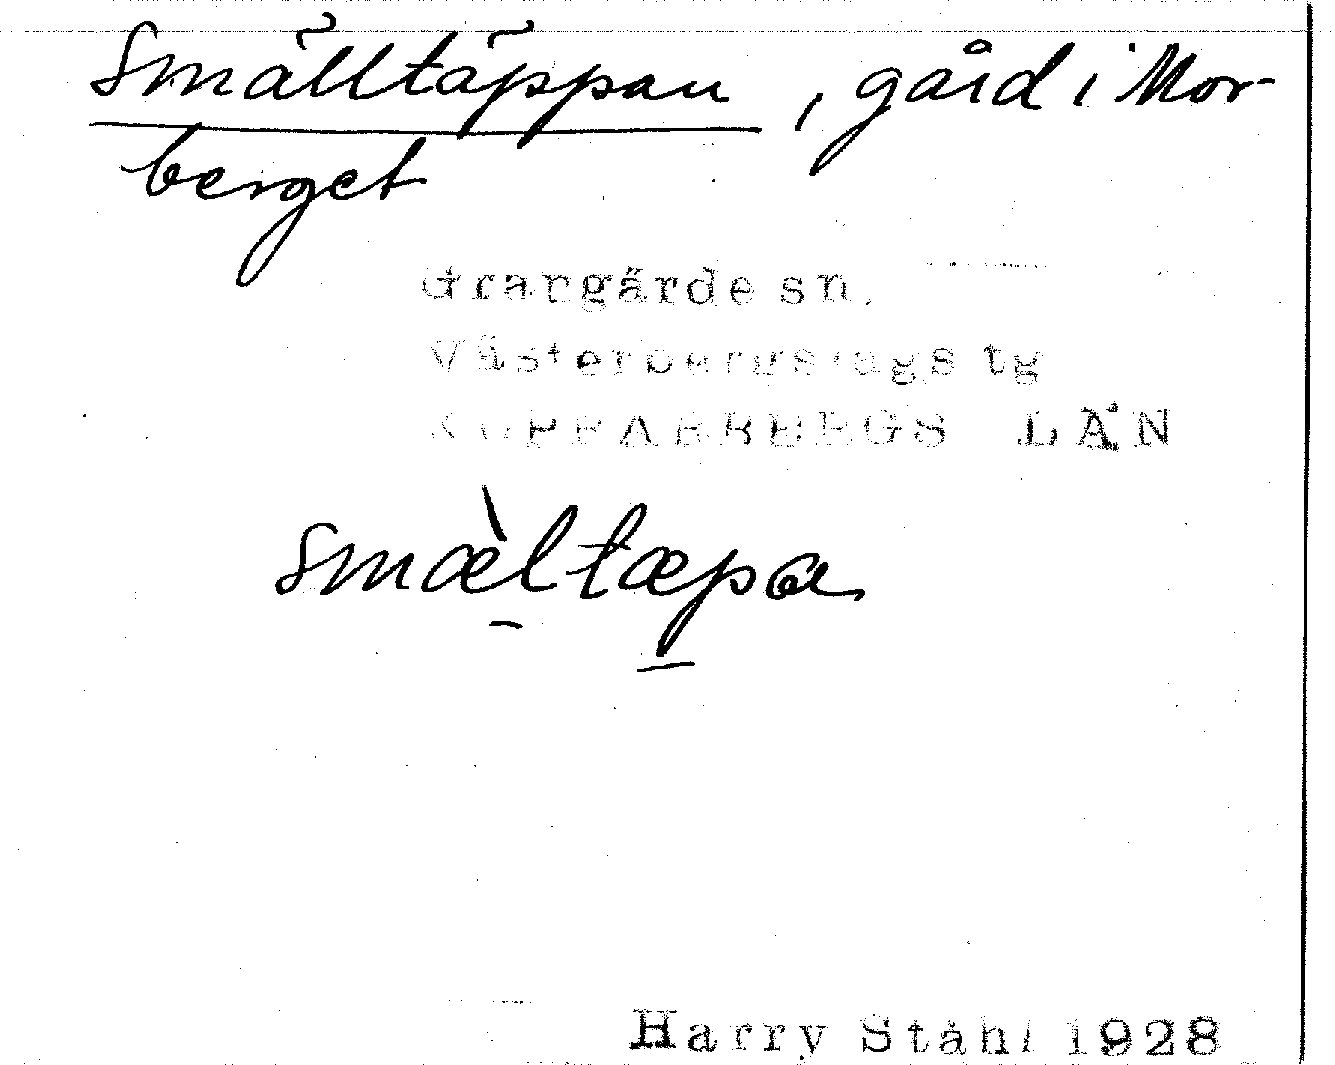 Smälltäppan, gård i Mor-
berget
Grangärde sn.
Västerbergslags tg
KOPPARBERGS LÄN
smæ̀ltæpa
Harry Ståhl 1928